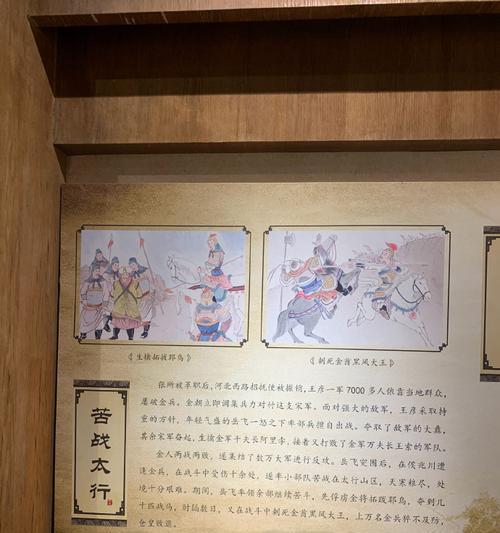 《生擒拓拔耶乌》
《刺死金酋黑风大王》
苦战太行
张所被革职后，河北西路招抚使被撤销，王彦一军7000多人依靠当地群众，
屡破金兵。金朝立即调集兵力对付这支宋军。面对强大的敌军，王彦采取持
重的方针，年轻气盛的岳飞一怒之下率部兵擅自出战。夺取了敌军的大纛，
其余宋军奋起，生擒金军千夫长阿里孛，接着又打败了金军万夫长王索的军队。
金人两战两败，遂集结了数万大军进行反攻。岳飞突围后，在侯兆川遭
逢金兵，在战斗中受伤十余处，遂率小部队苦战在太行山区，天寒粮尽，处
境十分艰难。期间，岳飞率领余部继续苦斗，先俘虏金将拓跋耶乌，夺到几
十匹战马，时隔数日，又在战斗中刺死金酋黑风大王，上万名金兵猝不及防，
仓皇败退。